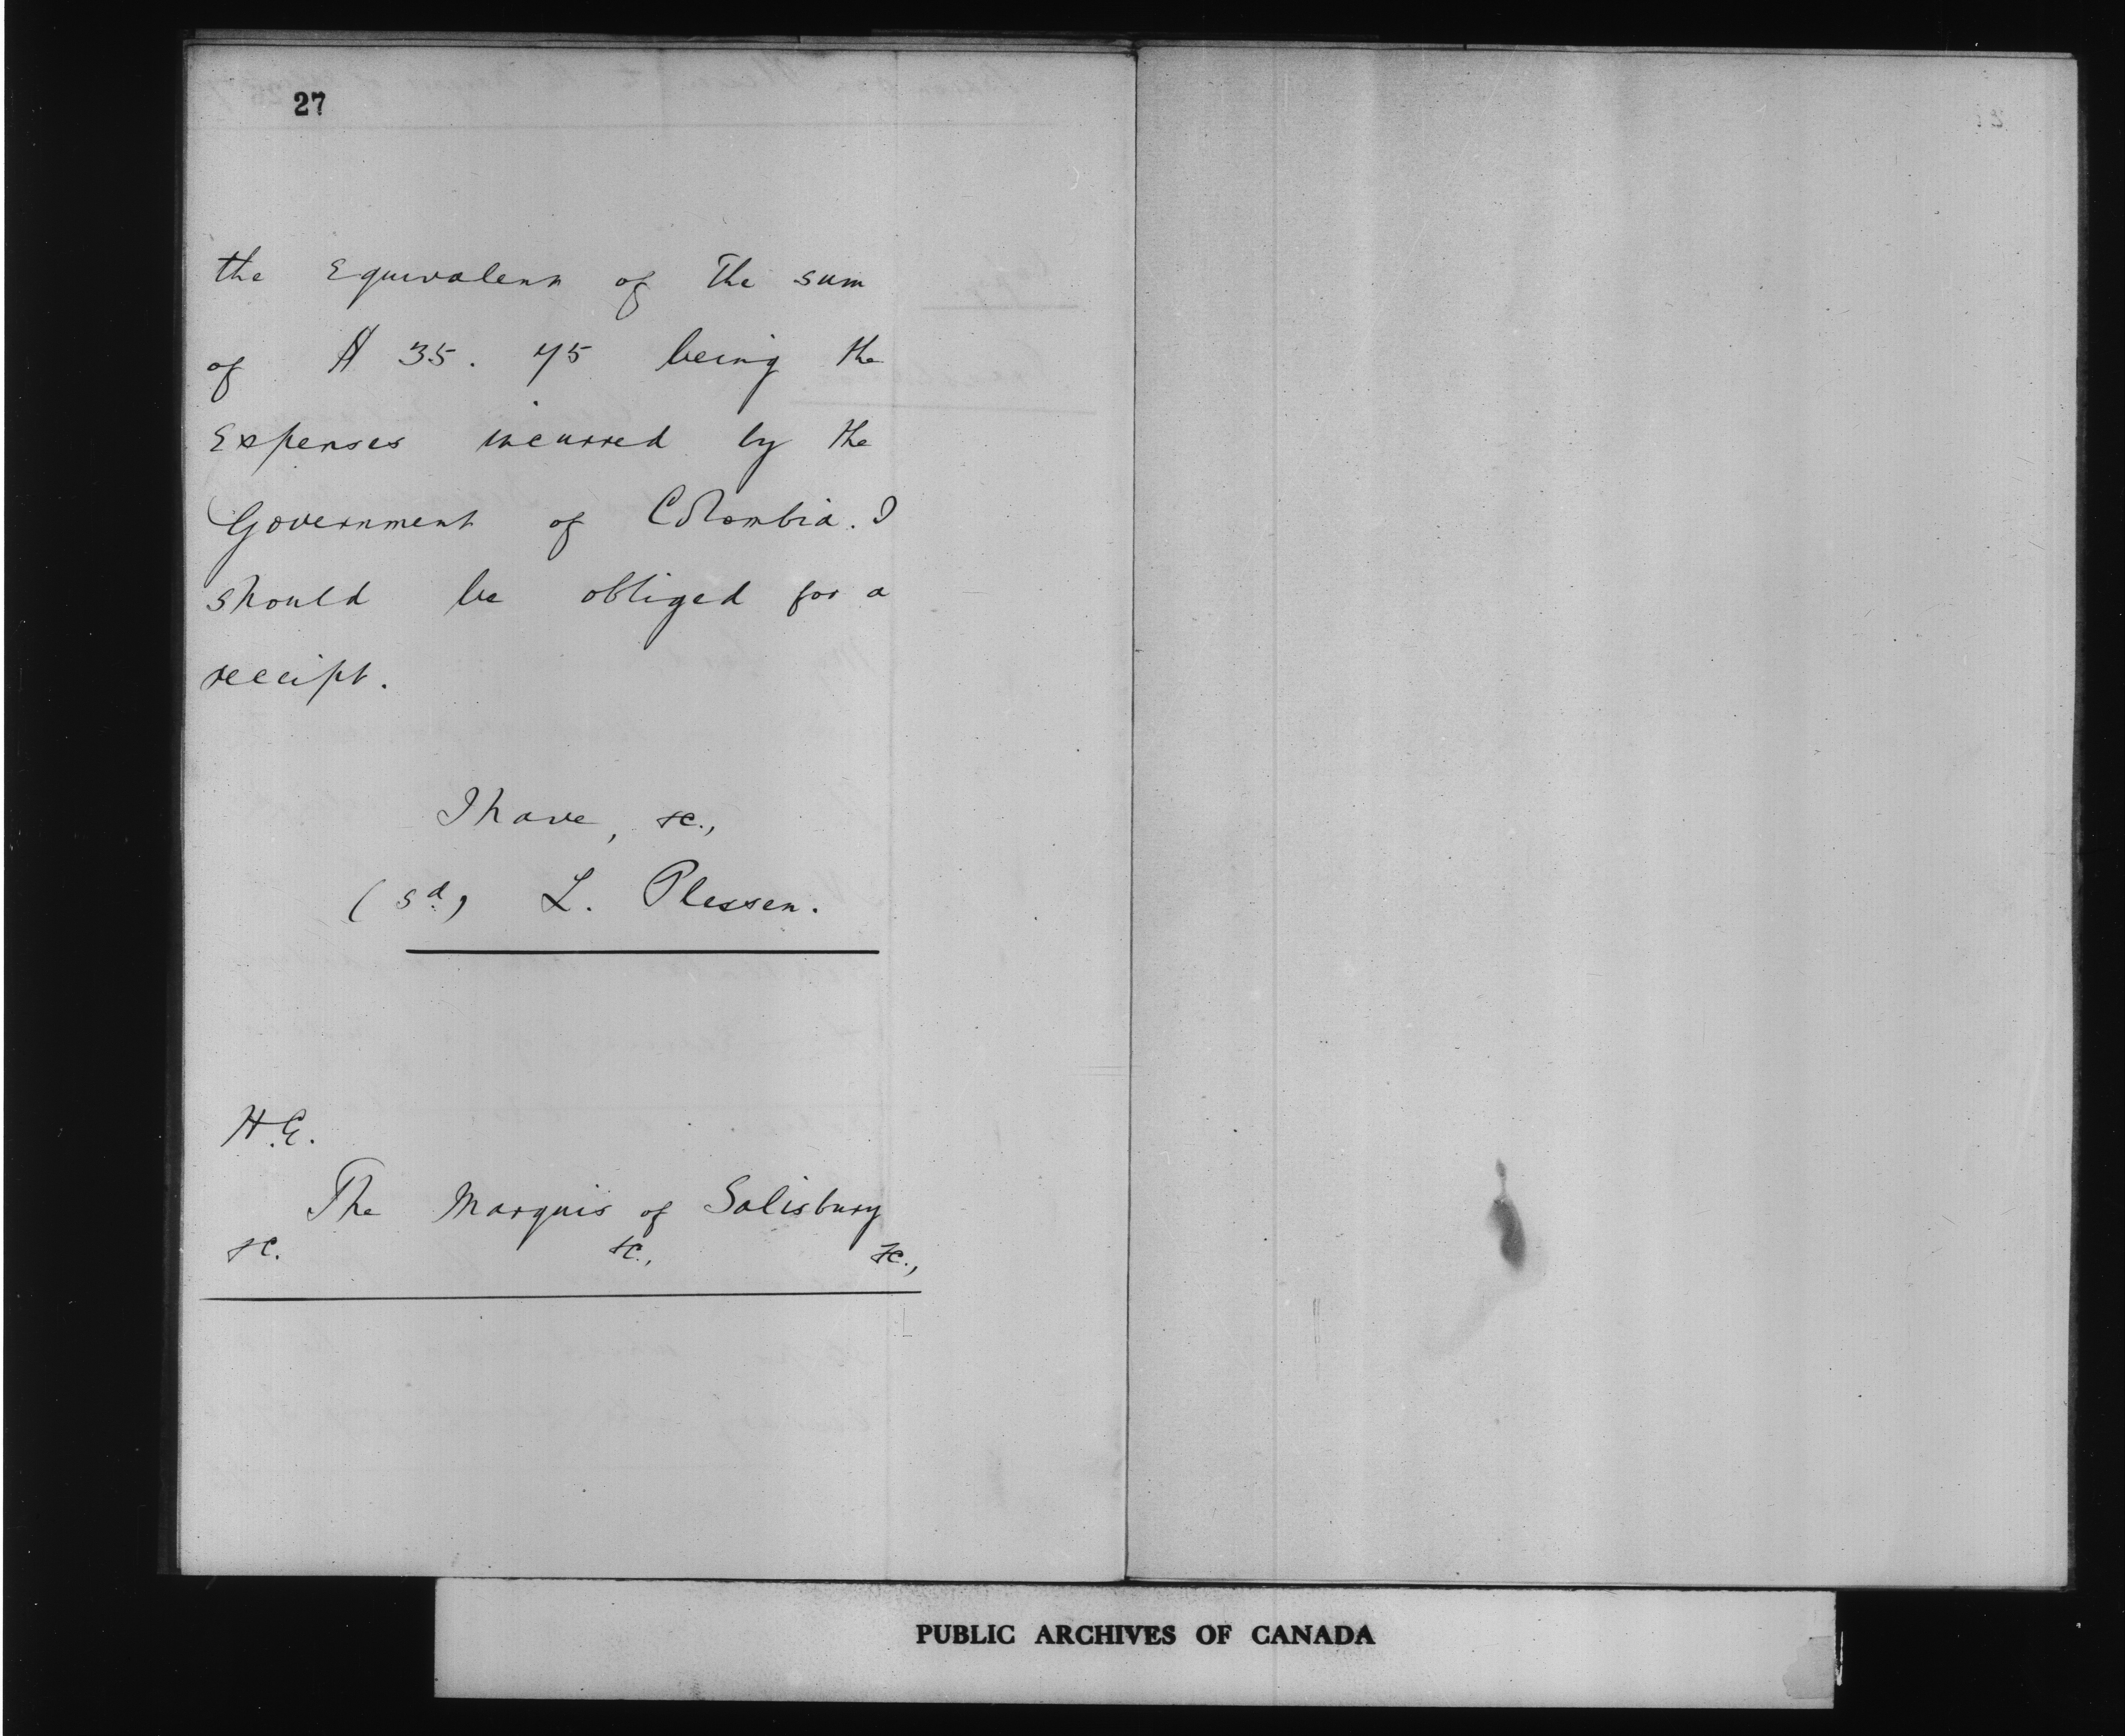 27
the Equivalent of The sum
of $ 35. 75 being the
Expenses incurred by the
Government of Colombia. I
should be obliged for a
receipt.
I have, &c.,
(sd) L. Plessen.
H.E.
The Marquis of Salisbury
&c. &c., &c.,
PUBLIC ARCHIVES OF CANADA